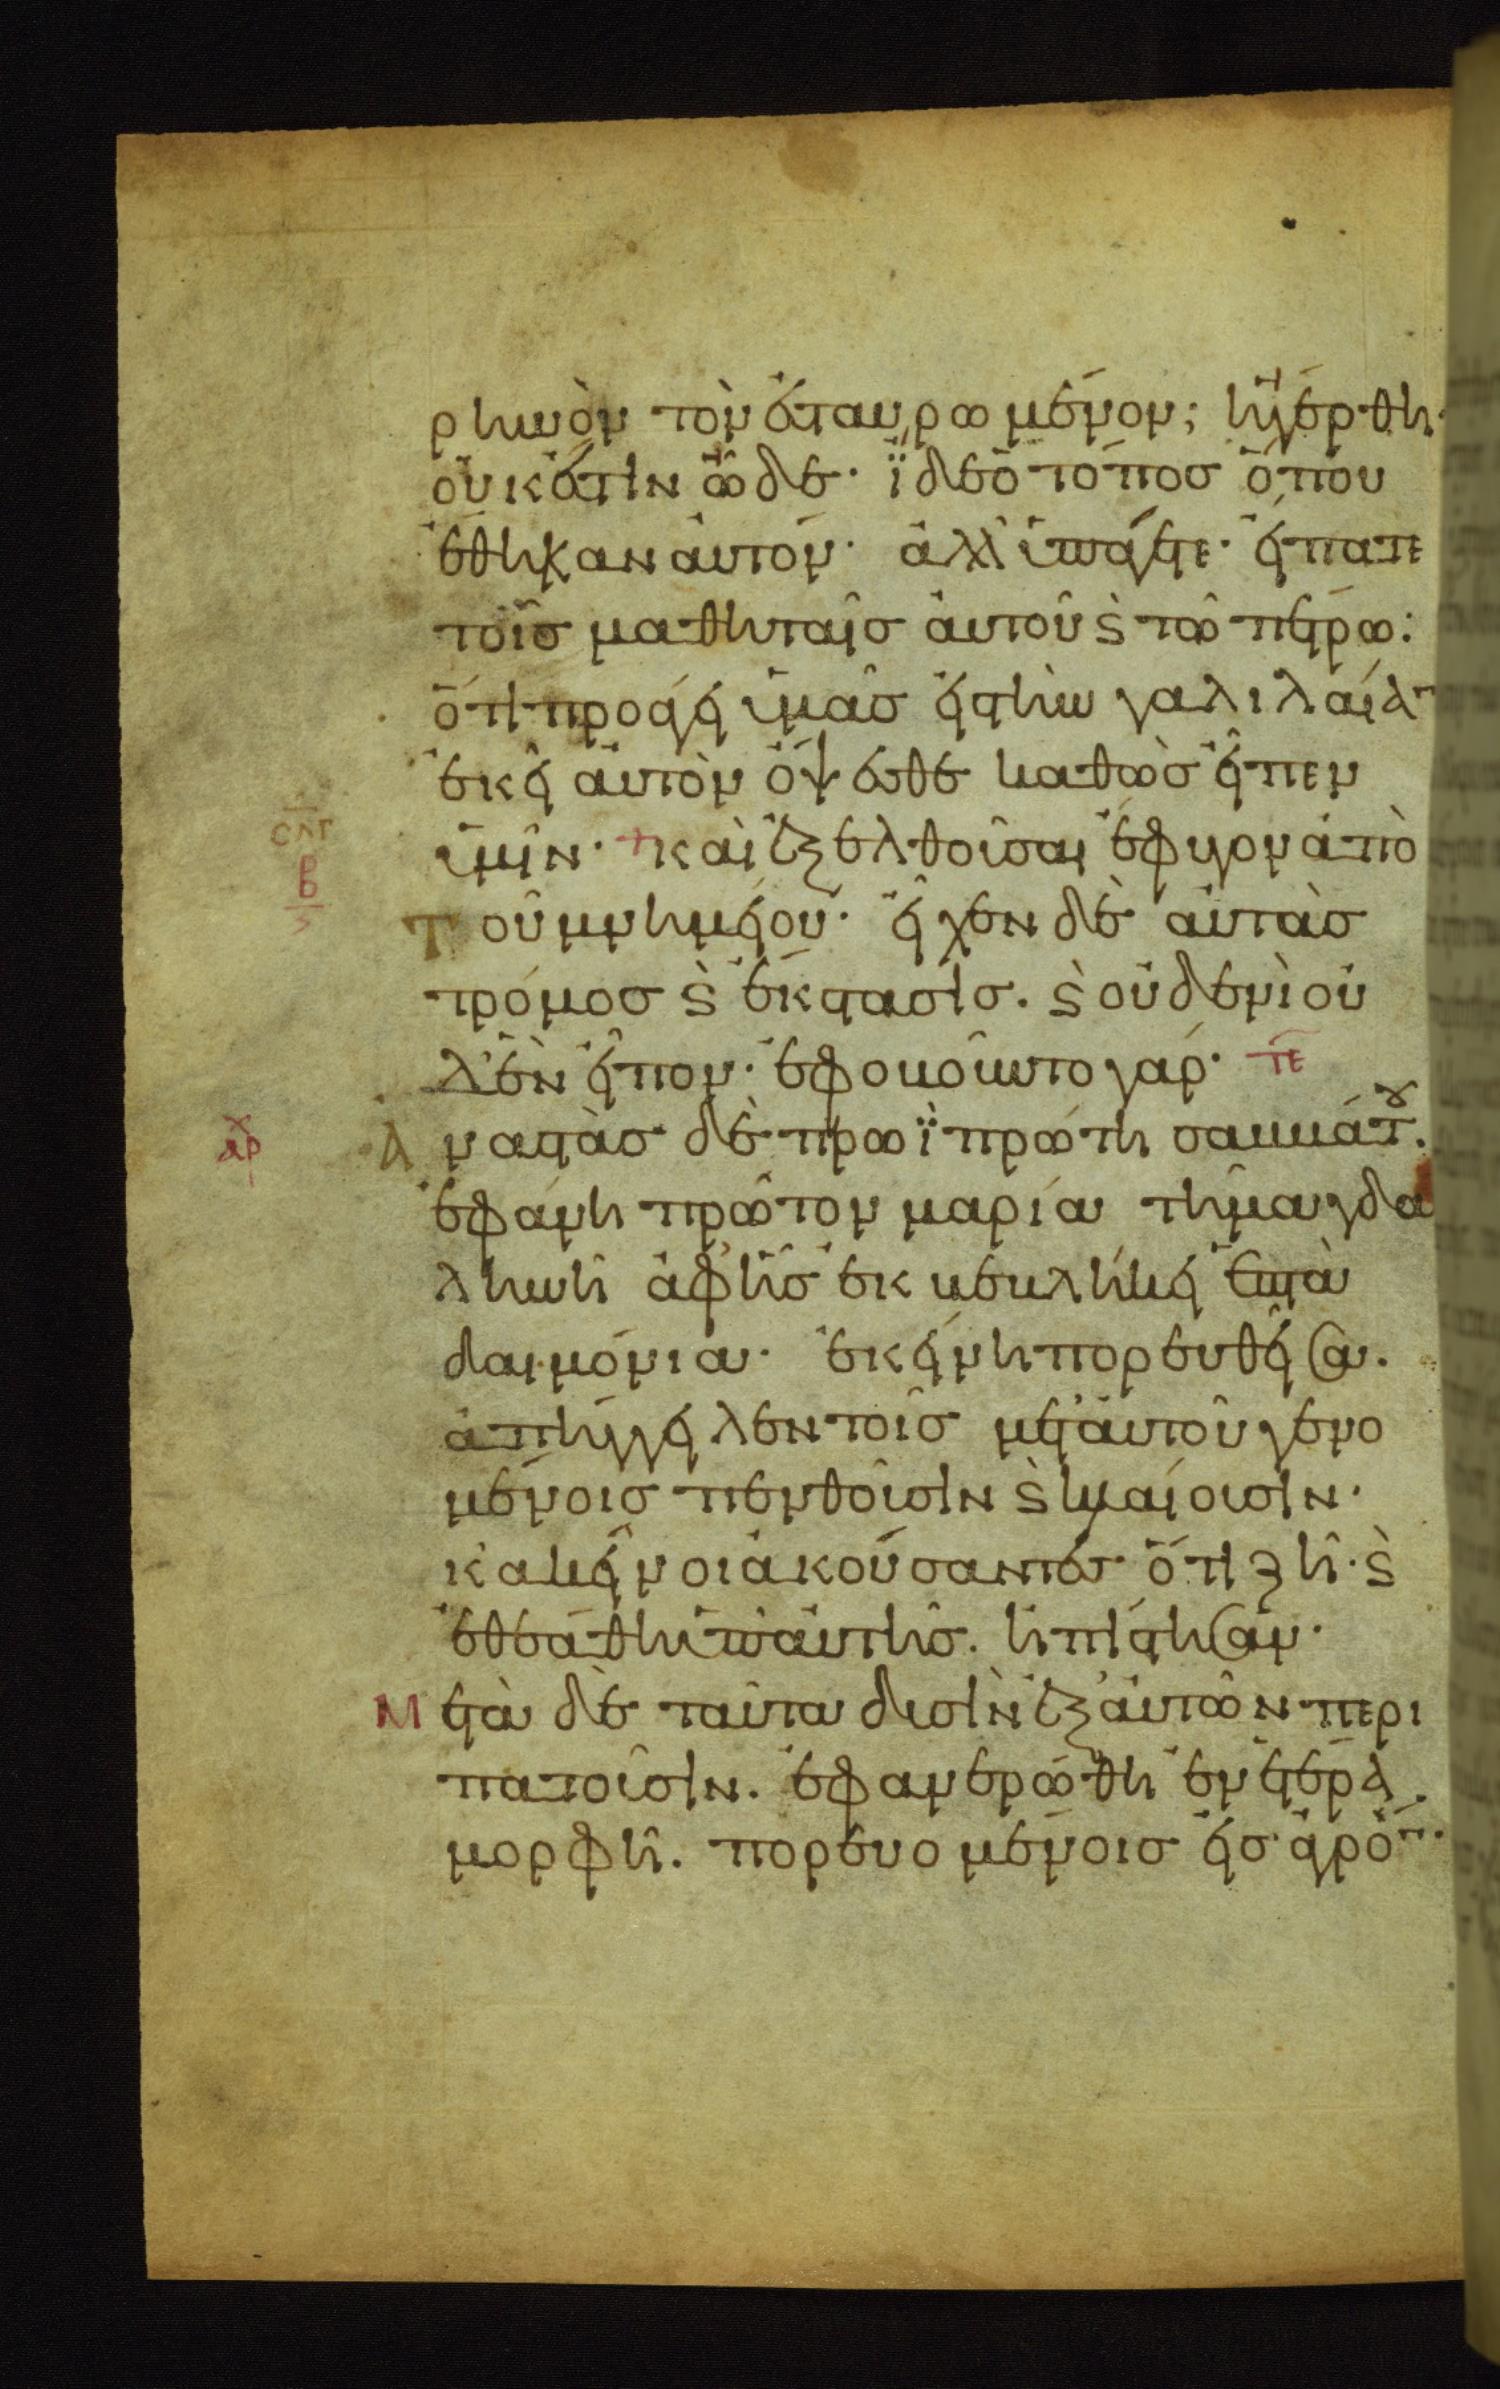 ρηνὸν τὸν ἐσταυρωμένον; ἠγέρθη·
οὐκ ἔστιν ὧδε· ἴδε ὁ τόπος ὅπου
ἔθηκαν αὐτόν· ἀλλ' ὑπάγετε· εἴπατε
τοῖς μαθηταῖς αὐτοῦ ϛ τῶ πέτρω:
ὅτι προάγει ὑμᾶς εἰς τὴν γαλιλαίαν
ἐκεῖ αὐτὸν ὄψεσθε καθὼς εἶπεν
ὑμῖν· καὶ ἐξελθοῦσαι ἔφυγον ἀπὸ
σλγ
β
τοῦ μνημείου· εἶχεν δὲ αὐτὰς
τρόμος ϛ ἔκστασις. ϛ οὐδενὶ οὐ
δὲν εἶπον· ἐφοβοῦντο γάρ· τε
αρχ
Ἀναστὰς δὲ πρωῒ πρώτη σαββάτου.
ἐφάνη πρῶτον μαρία τῆ μαγδα
ληνῆ ἀφ' ἧς ἐκβεβλήκει ἑπτὰ
δαιμόνια· ἐκείνη πορευθεῖσα.
ἀπήγγειλεν τοῖς μετ' αὐτοῦ γενο
μένοις πενθοῦσιν ϛ κλαίουσιν·
κακεῖνοι ἀκούσαντες ὅτι ζῆ· ϛ
ἐθεάθη ὑπ' αὐτῆς. ἠπίστησαν·
Μετὰ δὲ ταῦτα δυσὶν ἐξ αὐτῶν περι
πατοῦσιν. ἐφανερώθη ἐν ἑτέρα
μορφῆ. πορευομένοις εἰς ἀγρόν·